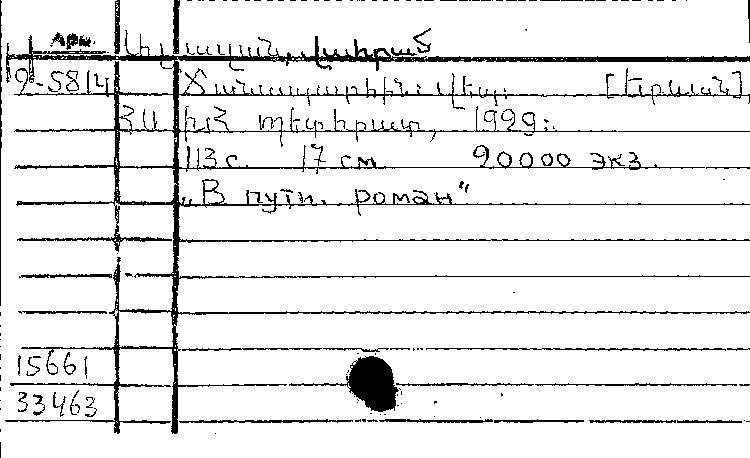 Арм.
Ալազան, Վահրամ
9-5814 Ճանապարհին: Վեպ: [Երևան],
ՀՍ ԽՀ պետհրատ, 1929:
113 с. 17 см 20000 экз.
„В пути. роман“
15661
33463